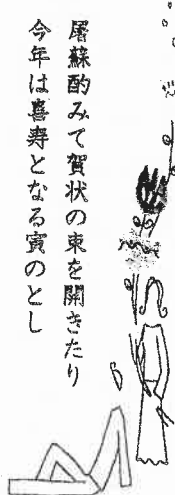 屠蘇酌みて賀状の束を開きたり
今年は喜寿となる寅のとし